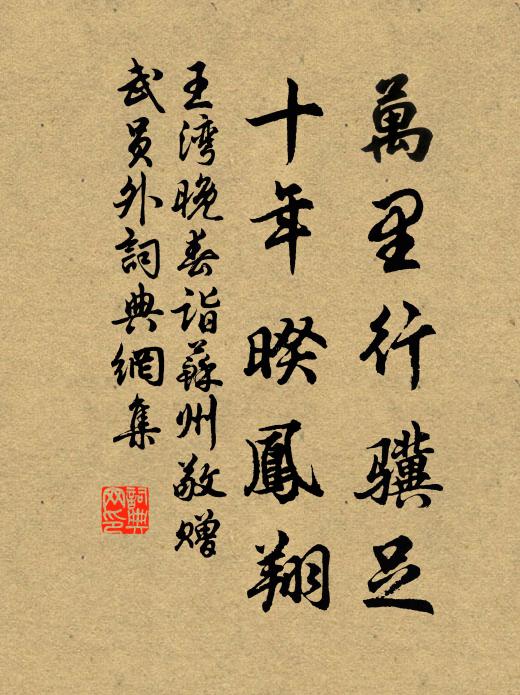 萬里行驥足
十年暌鳳翔
王湾晚春詣蘇州敬赠
武員外詞典網集
詞典网印